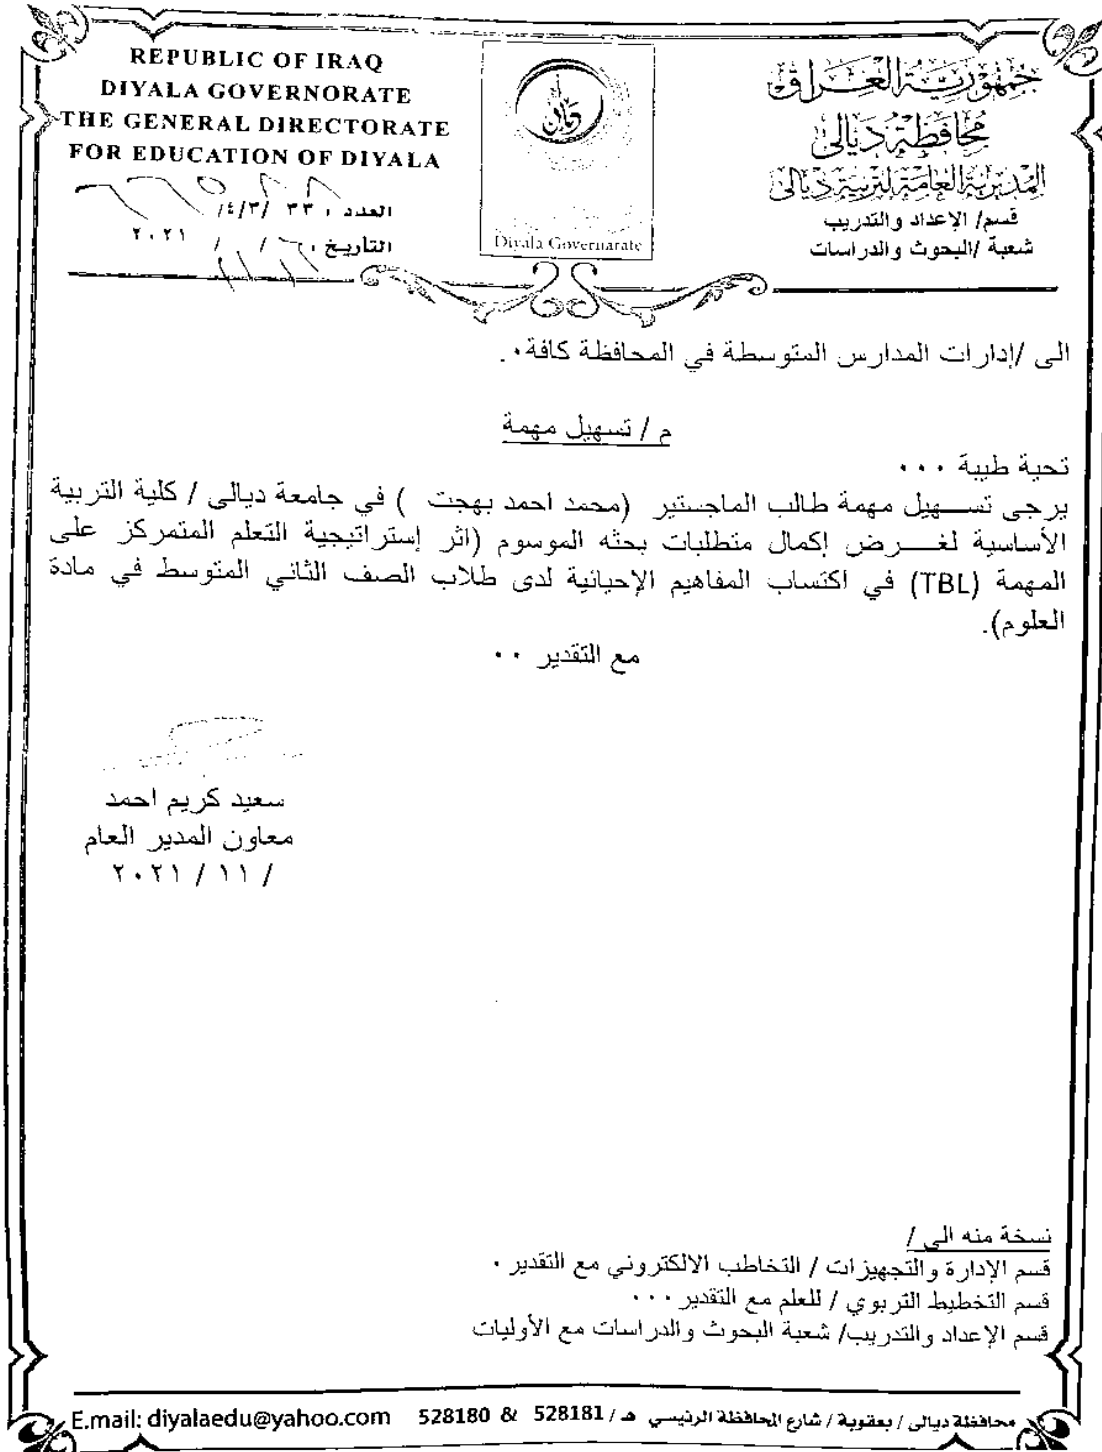 REPUBLIC OF IRAQ
DIYALA GOVERNORATE
THE GENERAL DIRECTORATE
FOR EDUCATION OF DIYALA
العدد : ٣٣ /٤/٣/
التاريخ : / / ٢٠٢١
ديالى
Diyala Governarate
جمهورية العراق
محافظة ديالى
المديرية العامة لتربية ديالى
قسم/ الإعداد والتدريب
شعبة /البحوث والدراسات
الى /إدارات المدارس المتوسطة في المحافظة كافة٠
م / تسهيل مهمة
تحية طيبة ٠٠٠
يرجى تسهيل مهمة طالب الماجستير (محمد احمد بهجت ) في جامعة ديالى / كلية التربية
الأساسية لغرض إكمال متطلبات بحثه الموسوم (اثر إستراتيجية التعلم المتمركز على
المهمة (TBL) في اكتساب المفاهيم الإحيائية لدى طلاب الصف الثاني المتوسط في مادة
العلوم).
مع التقدير ٠٠
سعيد كريم احمد
معاون المدير العام
/ ١١ / ٢٠٢١
نسخة منه الى /
قسم الإدارة والتجهيزات / التخاطب الالكتروني مع التقدير ٠
قسم التخطيط التربوي / للعلم مع التقدير ٠٠٠
قسم الإعداد والتدريب/ شعبة البحوث والدراسات مع الأوليات
محافظة ديالى / بعقوبة / شارع المحافظة الرئيسي هـ / 528181 & 528180 E.mail: diyalaedu@yahoo.com